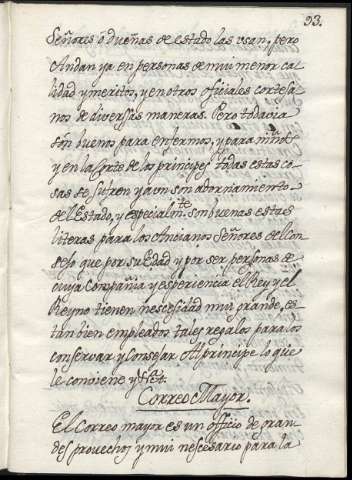 93.
Señores ó dueñas de estado las vsan, pero
Andan ya en personas de mui menor ca
lidad y meritos, y en otros oficiales cortesa
nos de diversas maneras. Pero todavia
son buenos para enfermos, y para niños
y en la Corte de los principes todas estas co
sas se sufren y aun son adornamiento
del Estado, y especialmte. son buenas estas
literas para los Ancianos Señores del Con
sejo que por su Edad y por ser personas de
cuya Compañia y esperiencia el Rey y el
Reyno tienen nescesidad mui grande, es
tan bien empleados tales regalos para los
conservar y Consejar Al principe lo que
le conviene y
Correo Mayor.
El Correo mayor es un officio de gran
des provechos y mui nescesario para la